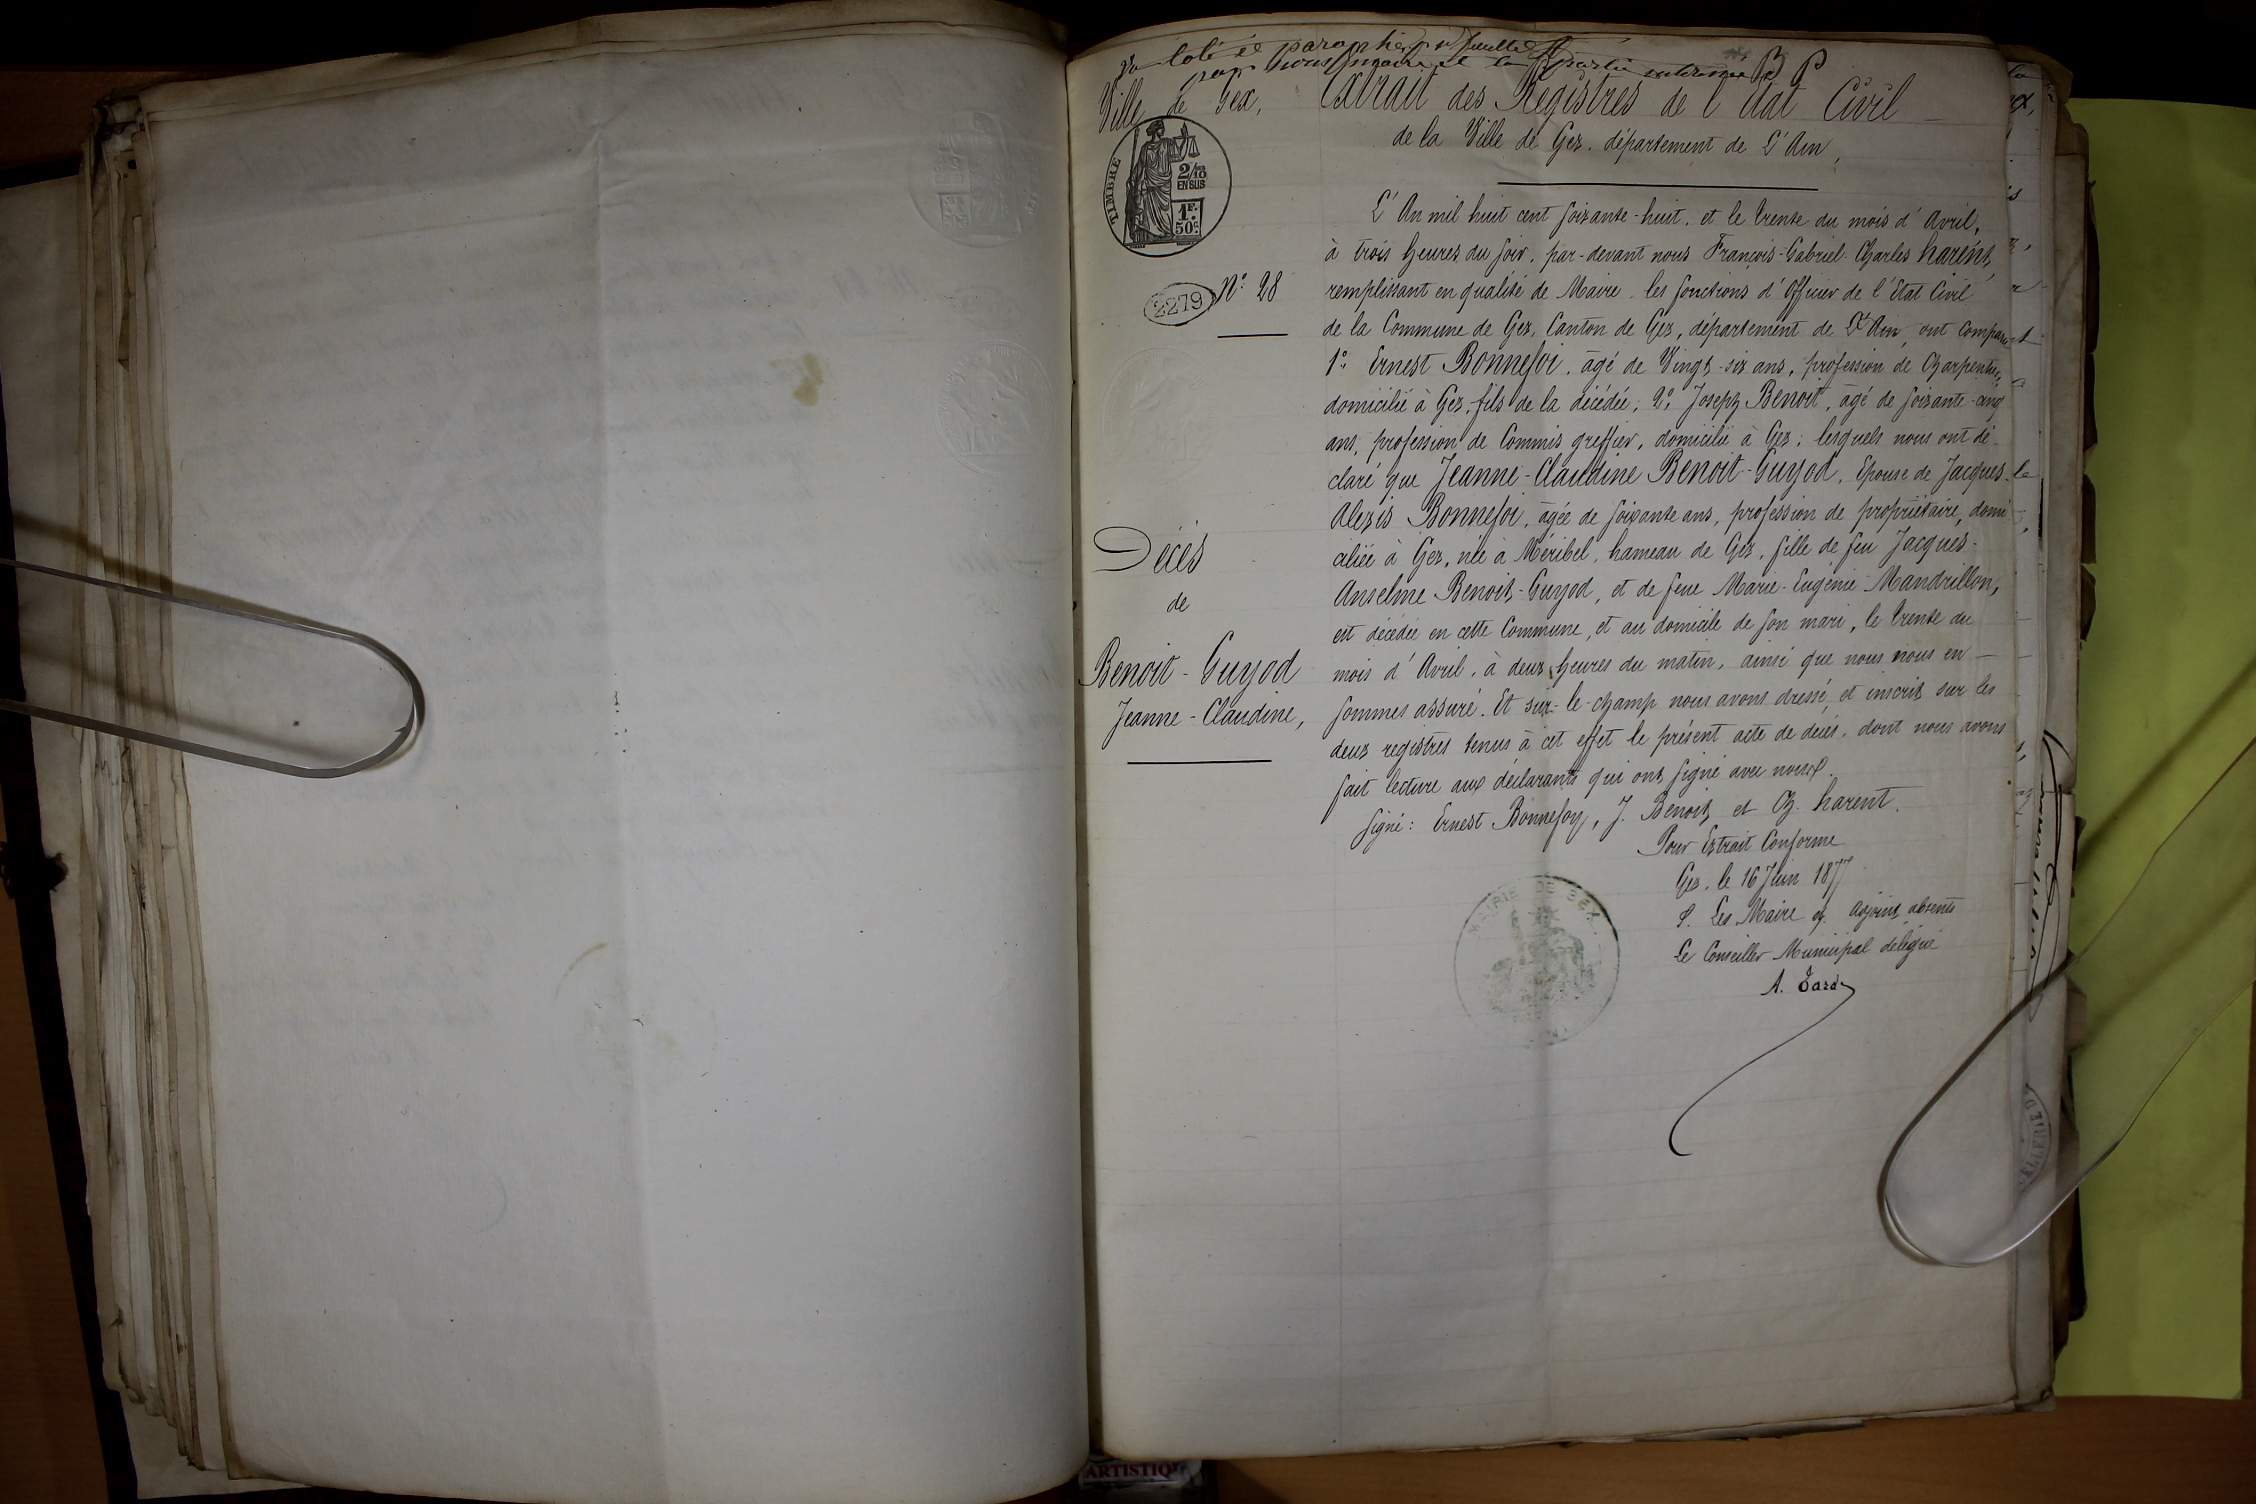 coté et paraphé
par nous maire et la partie
B P
Ville de Gex,
Extrait des Registres de l'état Civil
de la Ville de Gex, département de L'Ain,
TIMBRE
2/10
EN SUS
1F.
50c.
2279
N° 28
L'An mil huit cent soixante-huit, et le trente du mois d'Avril,
à trois heures du soir, par-devant nous François-Gabriel-Charles harent,
remplissant en qualité de Maire les fonctions d'Officier de l'Etat Civil
de la Commune de Gex, Canton de Gex, département de L'Ain, ont comparu
1° Ernest Bonnefoi, âgé de Vingt-six ans, profession de Charpentier,
domicilié à Gex, fils de la décédée; 2° Joseph Benoit, âgé de soixante-cinq
ans, profession de Commis greffier, domicilié à Gex; lesquels nous ont dé-
claré que Jeanne-Claudine Benoit-Guyod, Epouse de Jacques-
Alexis Bonnefoi, âgée de soixante ans, profession de propriétaire, domi
ciliée à Gex, née à Méribel, hameau de Gex, fille de feu Jacques-
Anselme Benoit-Guyod, et de feue Marie-Eugénie Mandrillon,
est décédée en cette Commune, et au domicile de son mari, le trente du
mois d'Avril, à deux heures du matin, ainsi que nous nous en
sommes assuré. Et sur-le-champ nous avons dressé, et inscrit sur les
deux registres tenus à cet effet le présent acte de décès, dont nous avons
fait lecture aux déclarants qui ont signé avec nous.
Signé: Ernest Bonnefoy, J. Benoit et Ch. harent.
Décès
de
Benoit-Guyod
Jeanne-Claudine,
Pour Extrait Conforme
Gex, le 16 Juin 1877
P. Les Maire et Adjoint absents
Le Conseiller Municipal délégué
A. Tardy
MAIRIE DE GEX
ARTISTIQ